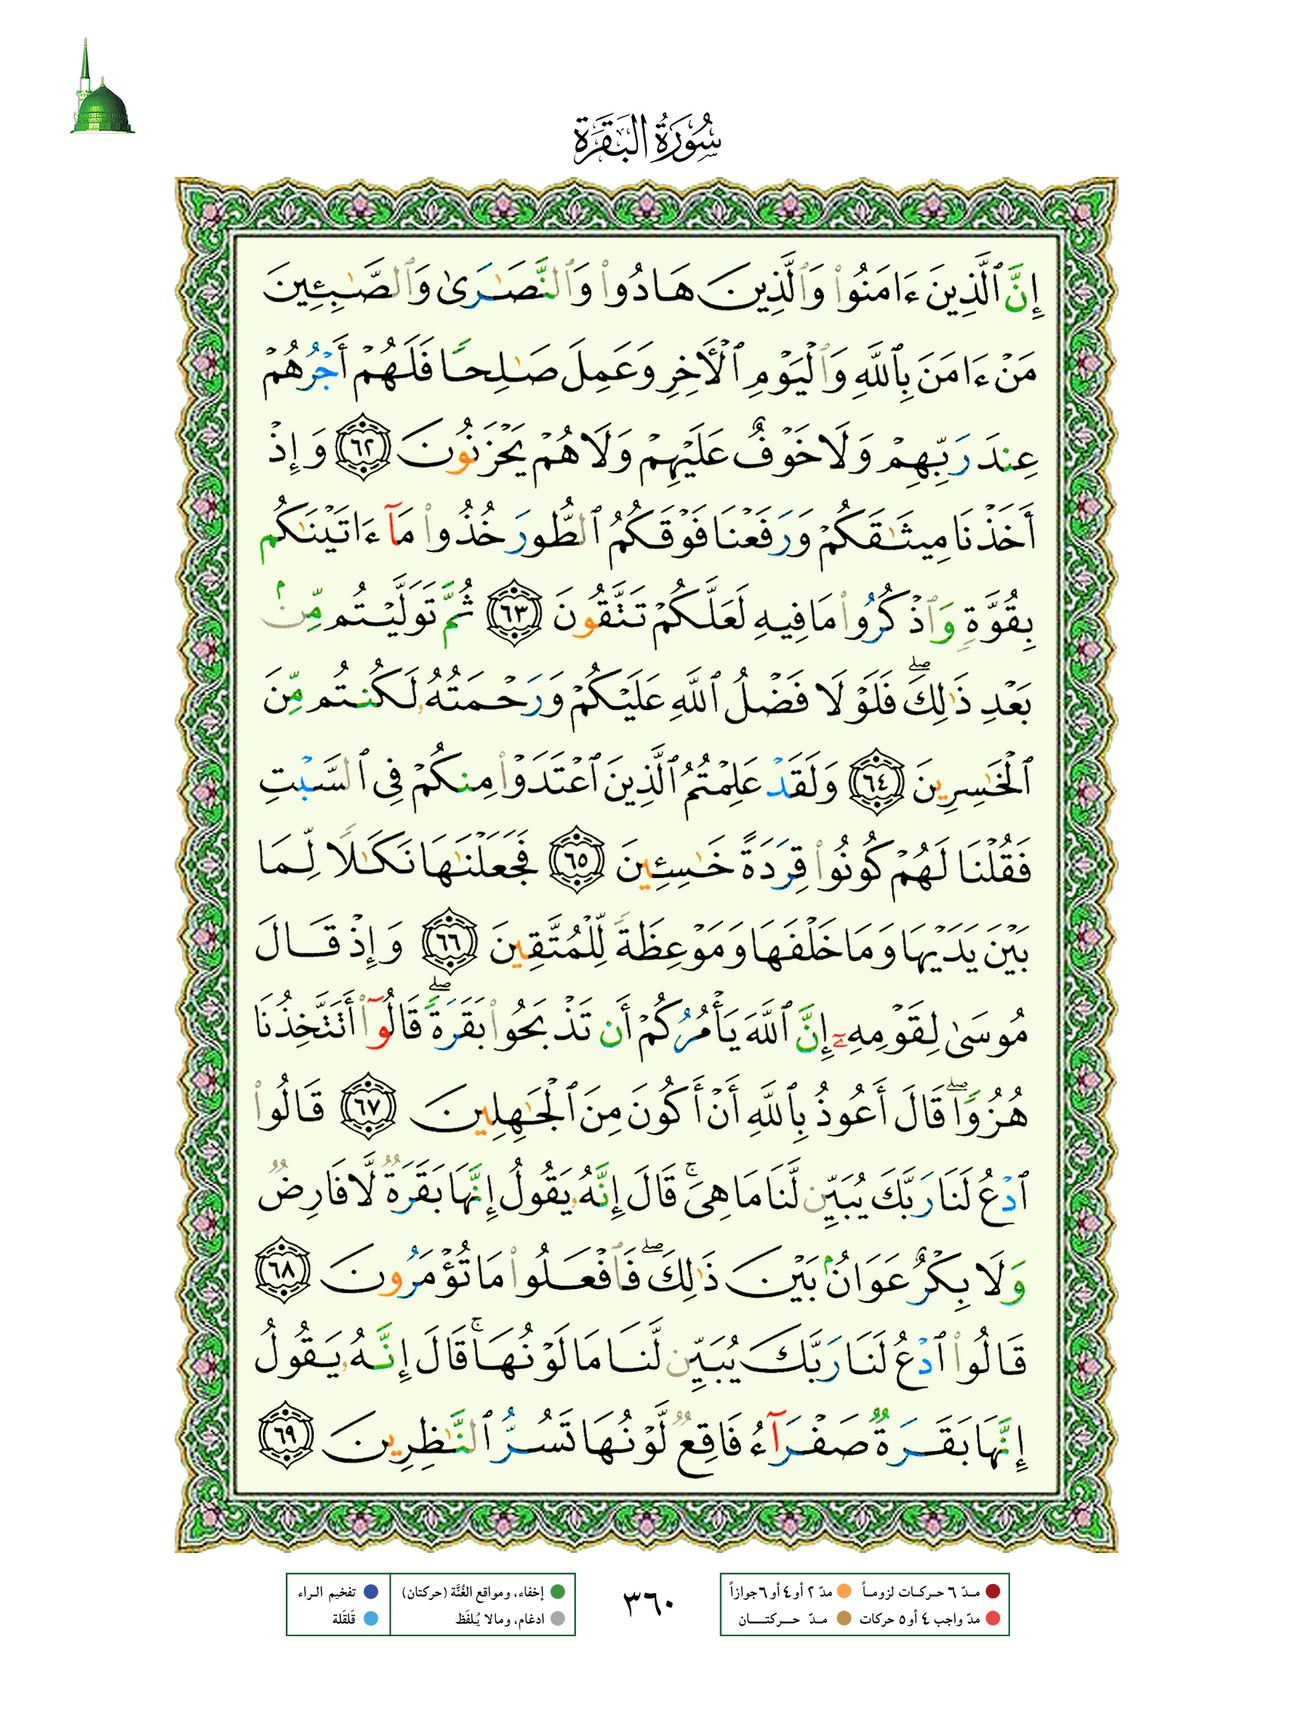 سُورَةُ البَقَرَة
إِنَّ ٱلَّذِينَ ءَامَنُواْ وَٱلَّذِينَ هَادُواْ وَٱلنَّصَـٰرَىٰ وَٱلصَّـٰبِـِٔينَ
مَنْ ءَامَنَ بِٱللَّهِ وَٱلْيَوْمِ ٱلْأَخِرِ وَعَمِلَ صَـٰلِحًا فَلَهُمْ أَجْرُهُمْ
عِندَ رَبِّهِمْ وَلَا خَوْفٌ عَلَيْهِمْ وَلَا هُمْ يَحْزَنُونَ ٦٢ وَإِذْ
أَخَذْنَا مِيثَـٰقَكُمْ وَرَفَعْنَا فَوْقَكُمُ ٱلطُّورَ خُذُواْ مَآ ءَاتَيْنَـٰكُم
بِقُوَّةٍ وَٱذْكُرُواْ مَا فِيهِ لَعَلَّكُمْ تَتَّقُونَ ٦٣ ثُمَّ تَوَلَّيْتُم مِّنۢ
بَعْدِ ذَٰلِكَ ۖ فَلَوْلَا فَضْلُ ٱللَّهِ عَلَيْكُمْ وَرَحْمَتُهُۥ لَكُنتُم مِّنَ
ٱلْخَـٰسِرِينَ ٦٤ وَلَقَدْ عَلِمْتُمُ ٱلَّذِينَ ٱعْتَدَوْاْ مِنكُمْ فِى ٱلسَّبْتِ
فَقُلْنَا لَهُمْ كُونُواْ قِرَدَةً خَـٰسِـِٔينَ ٦٥ فَجَعَلْنَـٰهَا نَكَـٰلًا لِّمَا
بَيْنَ يَدَيْهَا وَمَا خَلْفَهَا وَمَوْعِظَةً لِّلْمُتَّقِينَ ٦٦ وَإِذْ قَالَ
مُوسَىٰ لِقَوْمِهِۦٓ إِنَّ ٱللَّهَ يَأْمُرُكُمْ أَن تَذْبَحُواْ بَقَرَةً ۖ قَالُوٓاْ أَتَتَّخِذُنَا
هُزُوًا ۖ قَالَ أَعُوذُ بِٱللَّهِ أَنْ أَكُونَ مِنَ ٱلْجَـٰهِلِينَ ٦٧ قَالُواْ
ٱدْعُ لَنَا رَبَّكَ يُبَيِّن لَّنَا مَا هِىَ ۚ قَالَ إِنَّهُۥ يَقُولُ إِنَّهَا بَقَرَةٌ لَّا فَارِضٌ
وَلَا بِكْرٌ عَوَانٌۢ بَيْنَ ذَٰلِكَ ۖ فَٱفْعَلُواْ مَا تُؤْمَرُونَ ٦٨
قَالُواْ ٱدْعُ لَنَا رَبَّكَ يُبَيِّن لَّنَا مَا لَوْنُهَا ۚ قَالَ إِنَّهُۥ يَقُولُ
إِنَّهَا بَقَرَةٌ صَفْرَآءُ فَاقِعٌ لَّوْنُهَا تَسُرُّ ٱلنَّـٰظِرِينَ ٦٩
مـدّ ٦ حـركـات لزومـاً مدّ ٢ أو ٤ أو ٦ جوازاً
مدّ واجب ٤ أو ٥ حركات مـدّ حـــركتـــان
٣٦٠
إخفاء، ومواقع الغُنَّة (حركتان) تفخيم الـراء
ادغام، ومالا يُـلفَظ قلقلة